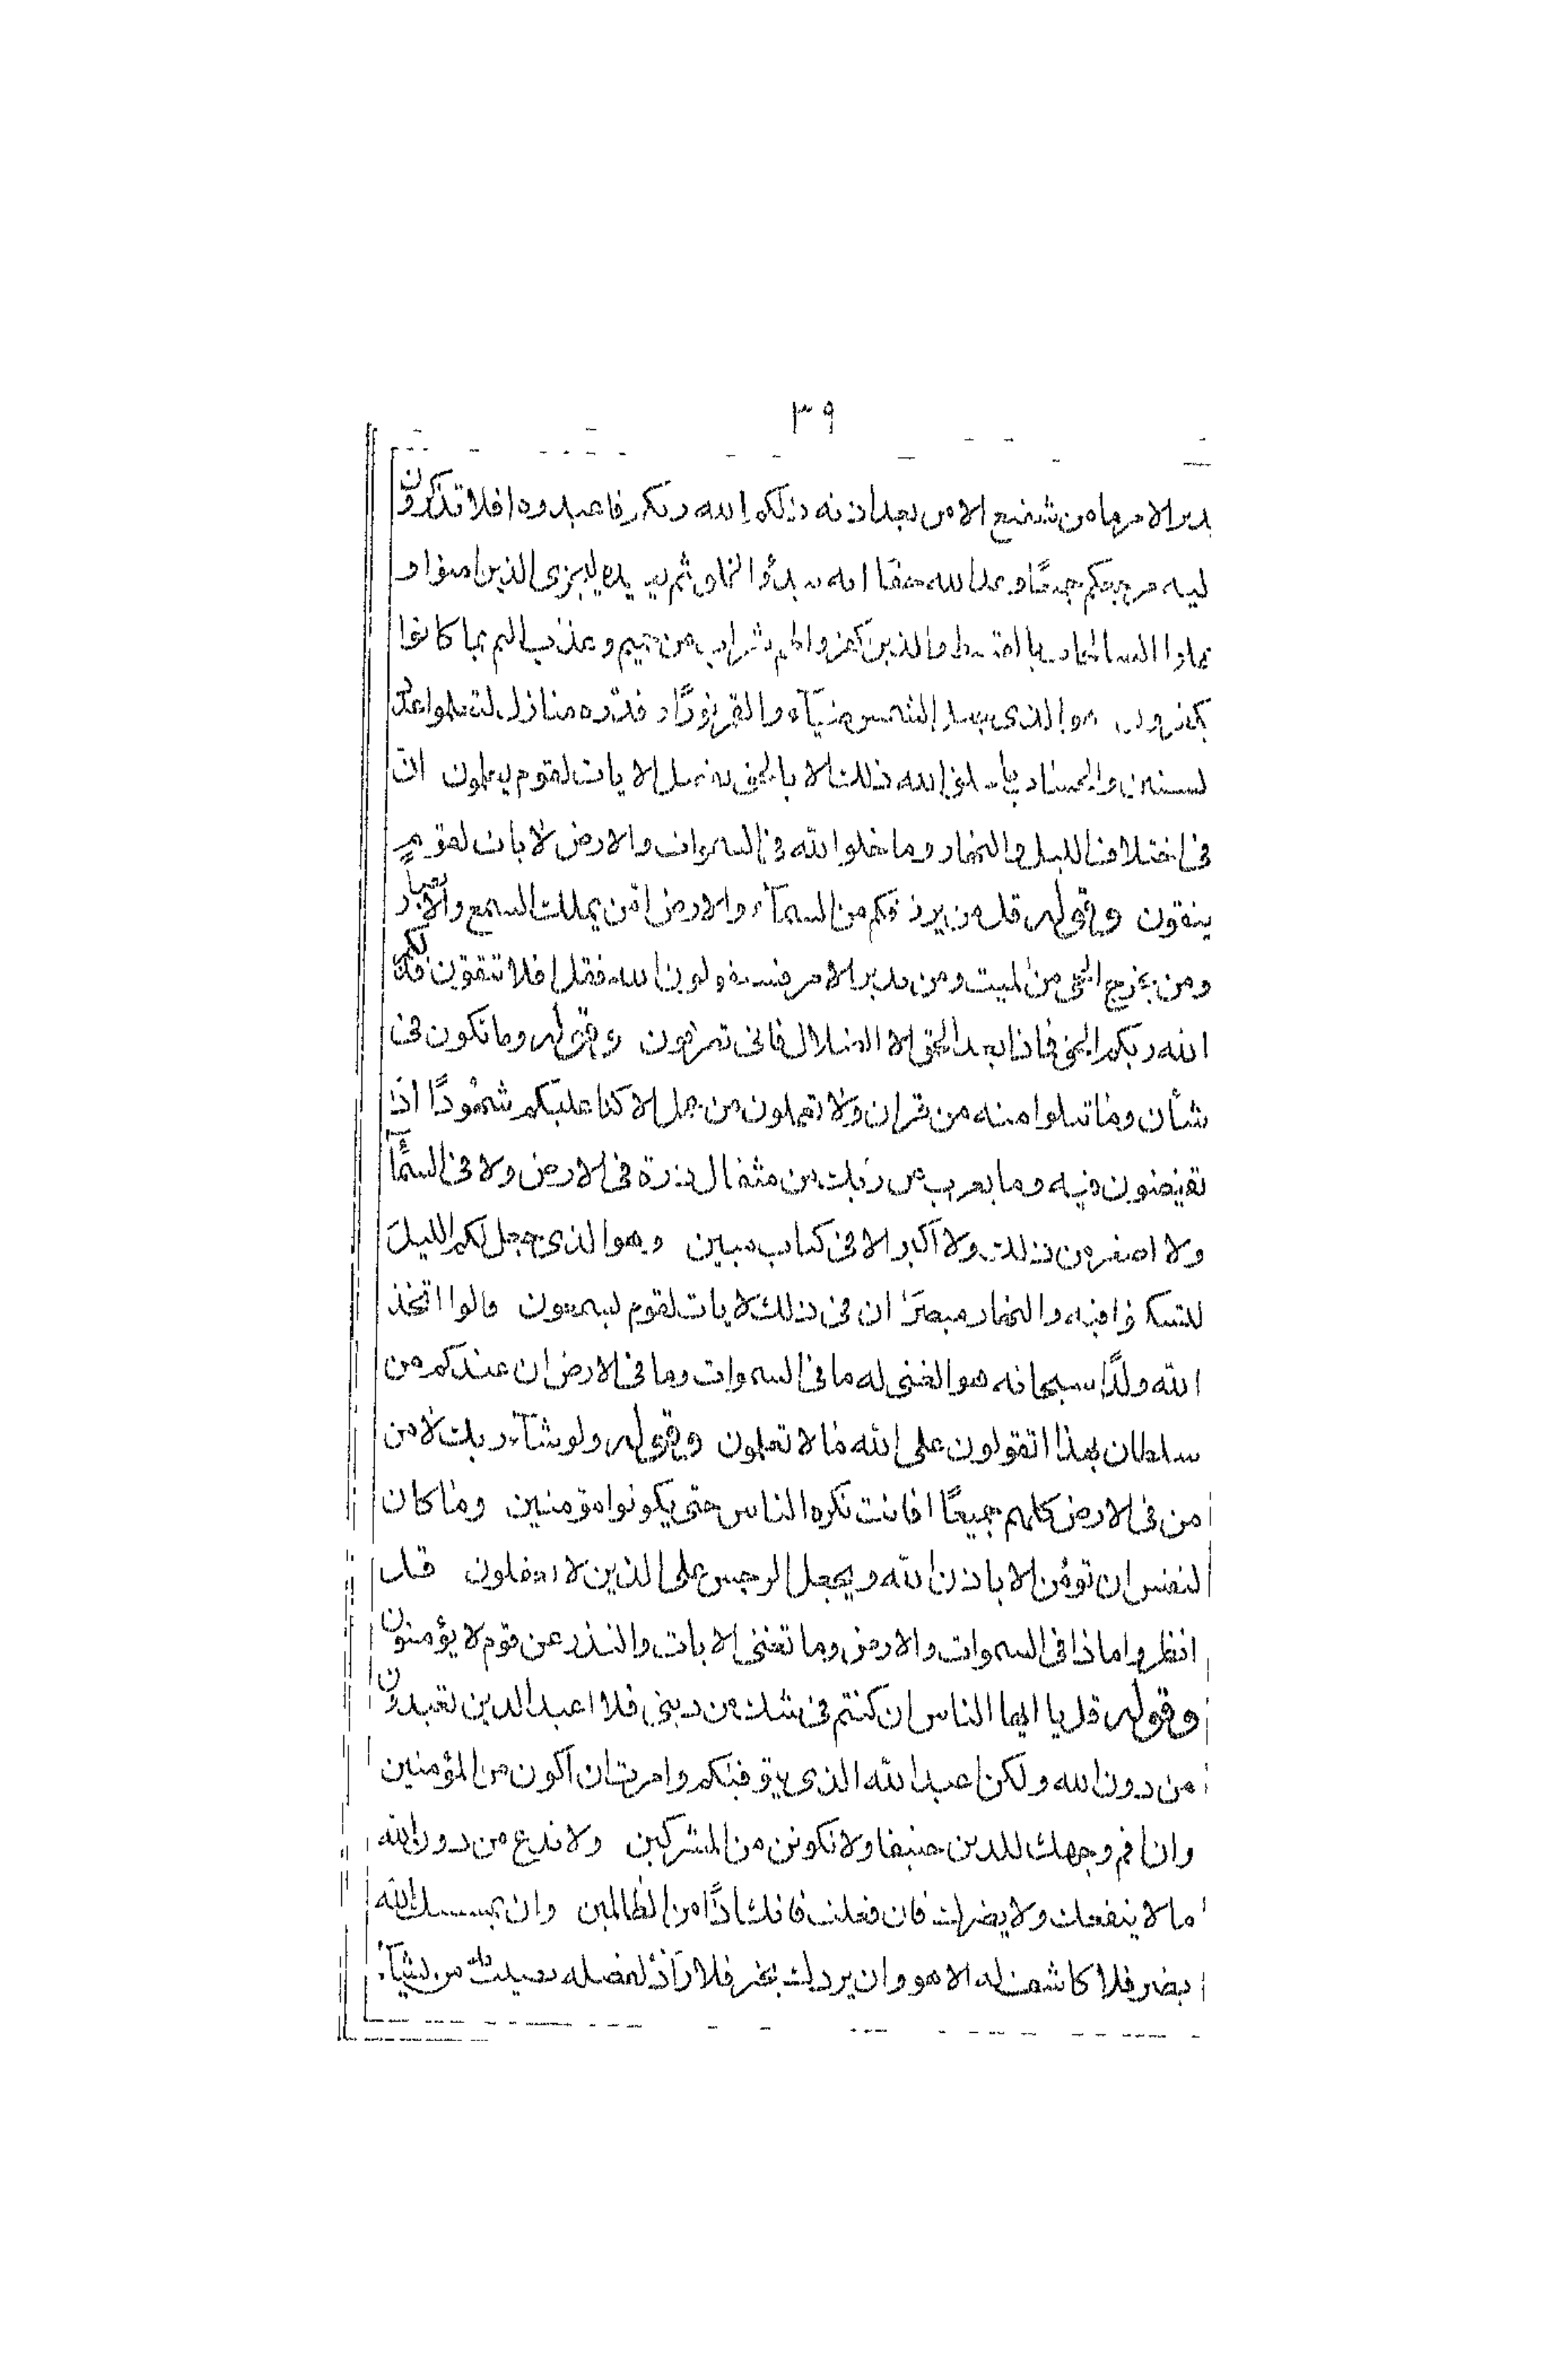 ٣٩
يدبر الامر ما من شفيع الا من بعد اذنه ذلكم الله ربكم فاعبدوه افلا تذكرون
ليه مرجعكم جميعًا وعد الله حقا انه يبدؤا الخلق ثم يعيده ليجزى الذين امنوا و
عملوا الصالحات بالقسط والذين كفروا لهم شراب من حميم وعذب اليم بما كانوا
يكفرون هو الذى جعل الشمس ضيآء والقمر نورًا وقدّره منازل لتعلموا عدد
لسنين والحساب ما خلق الله ذلك الا بالحق يفصل الايات لقوم يعلمون انّ
فى اختلاف الليل والنهار وما خلق الله فى السموات والارض لايات لقومٍ
يتقون وقوله قل من يرزقكم من السمآء والارض امّن يملك السمع والابصار
ومن يخرج الحى من الميت ومن يدبر الامر فسيقولون الله فقل افلا تتقون فذلكم
الله ربكم الحق فماذا بعد الحق الا الضلال فانى تصرفون وقوله وما تكون فى
شأن وما تتلوا منه من قران ولا تعملون من عمل الا كنا عليكم شهُودًا اذ
تفيضون فيه وما يعزب عن ربك من مثقال ذرة فى الارض ولا فى السمآء
ولا اصغر من ذلك ولا اكبر الا فى كتاب مبين وهو الذى جعل لكم الليل
لتسكنوا فيه والنهار مبصرًا ان فى ذلك لايات لقوم يسمعون قالوا اتخذ
الله ولدًا سبحانه هو الغنى له ما فى السموات وما فى الارض ان عندكم من
سلطان بهذا اتقولون على الله ما لا تعلمون وقوله ولو شآء ربك لامن
من فى الارض كلهم جميعًا افانت تكره الناس حتى يكونوا مؤمنين وما كان
لنفس ان تؤمن الا باذن الله ويجعل الرجس على الذين لا يعقلون قل
انظروا ماذا فى السموات والارض وما تغنى الايات والنذر عن قوم لا يؤمنون
وقوله قل يا ايها الناس ان كنتم فى شك من دينى فلا اعبد الذين تعبدون
من دون الله ولكن اعبد الله الذى يتوفيكم وامرت ان اكون من المؤمنين
وان اقم وجهك للدين حنيفا ولا تكونن من المشركين ولا تدع من دون الله
ما لا ينفعك ولا يضرك فان فعلت فانك اذًا من الظالمين وان يمسسك الله
بضر فلا كاشف له الا هو وان يردك بخير فلا رآدّ لفضله يصيب به من يشآء